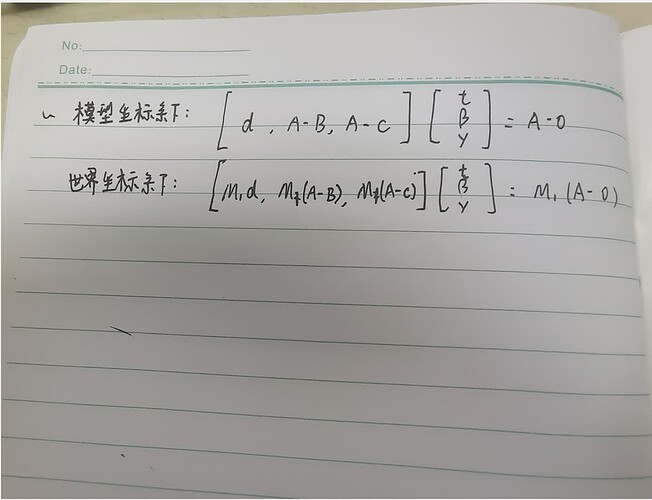 No:
Date:
模型坐标系下: [d, A-B, A-C] [t β γ] = A-O
世界坐标系下: [M₁d, M₁(A-B), M₁(A-C)] [t β γ] = M₁(A-O)